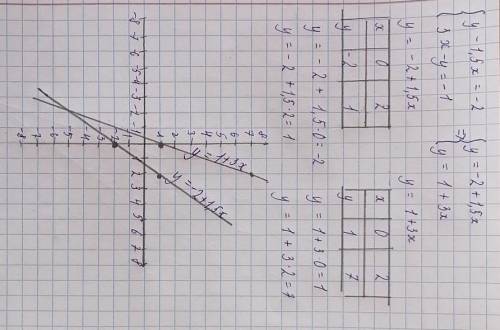 { y - 1,5x = -2 => { y = -2 + 1,5x
{ 3x - y = -1 { y = 1 + 3x
y = -2 + 1,5x y = 1 + 3x
x 0 2 x 0 2
y -2 1 y 1 7
y = -2 + 1,5·0 = -2 y = 1 + 3·0 = 1
y = -2 + 1,5·2 = 1 y = 1 + 3·2 = 1
8
7
6
5
4
3
2
1
y = 1+3x
y = -2+1,5x
-8 -7 -6 -5 -4 -3 -2 -1 1 2 3 4 5 6 7 8
-1
-2
-3
-4
-5
-7
-8